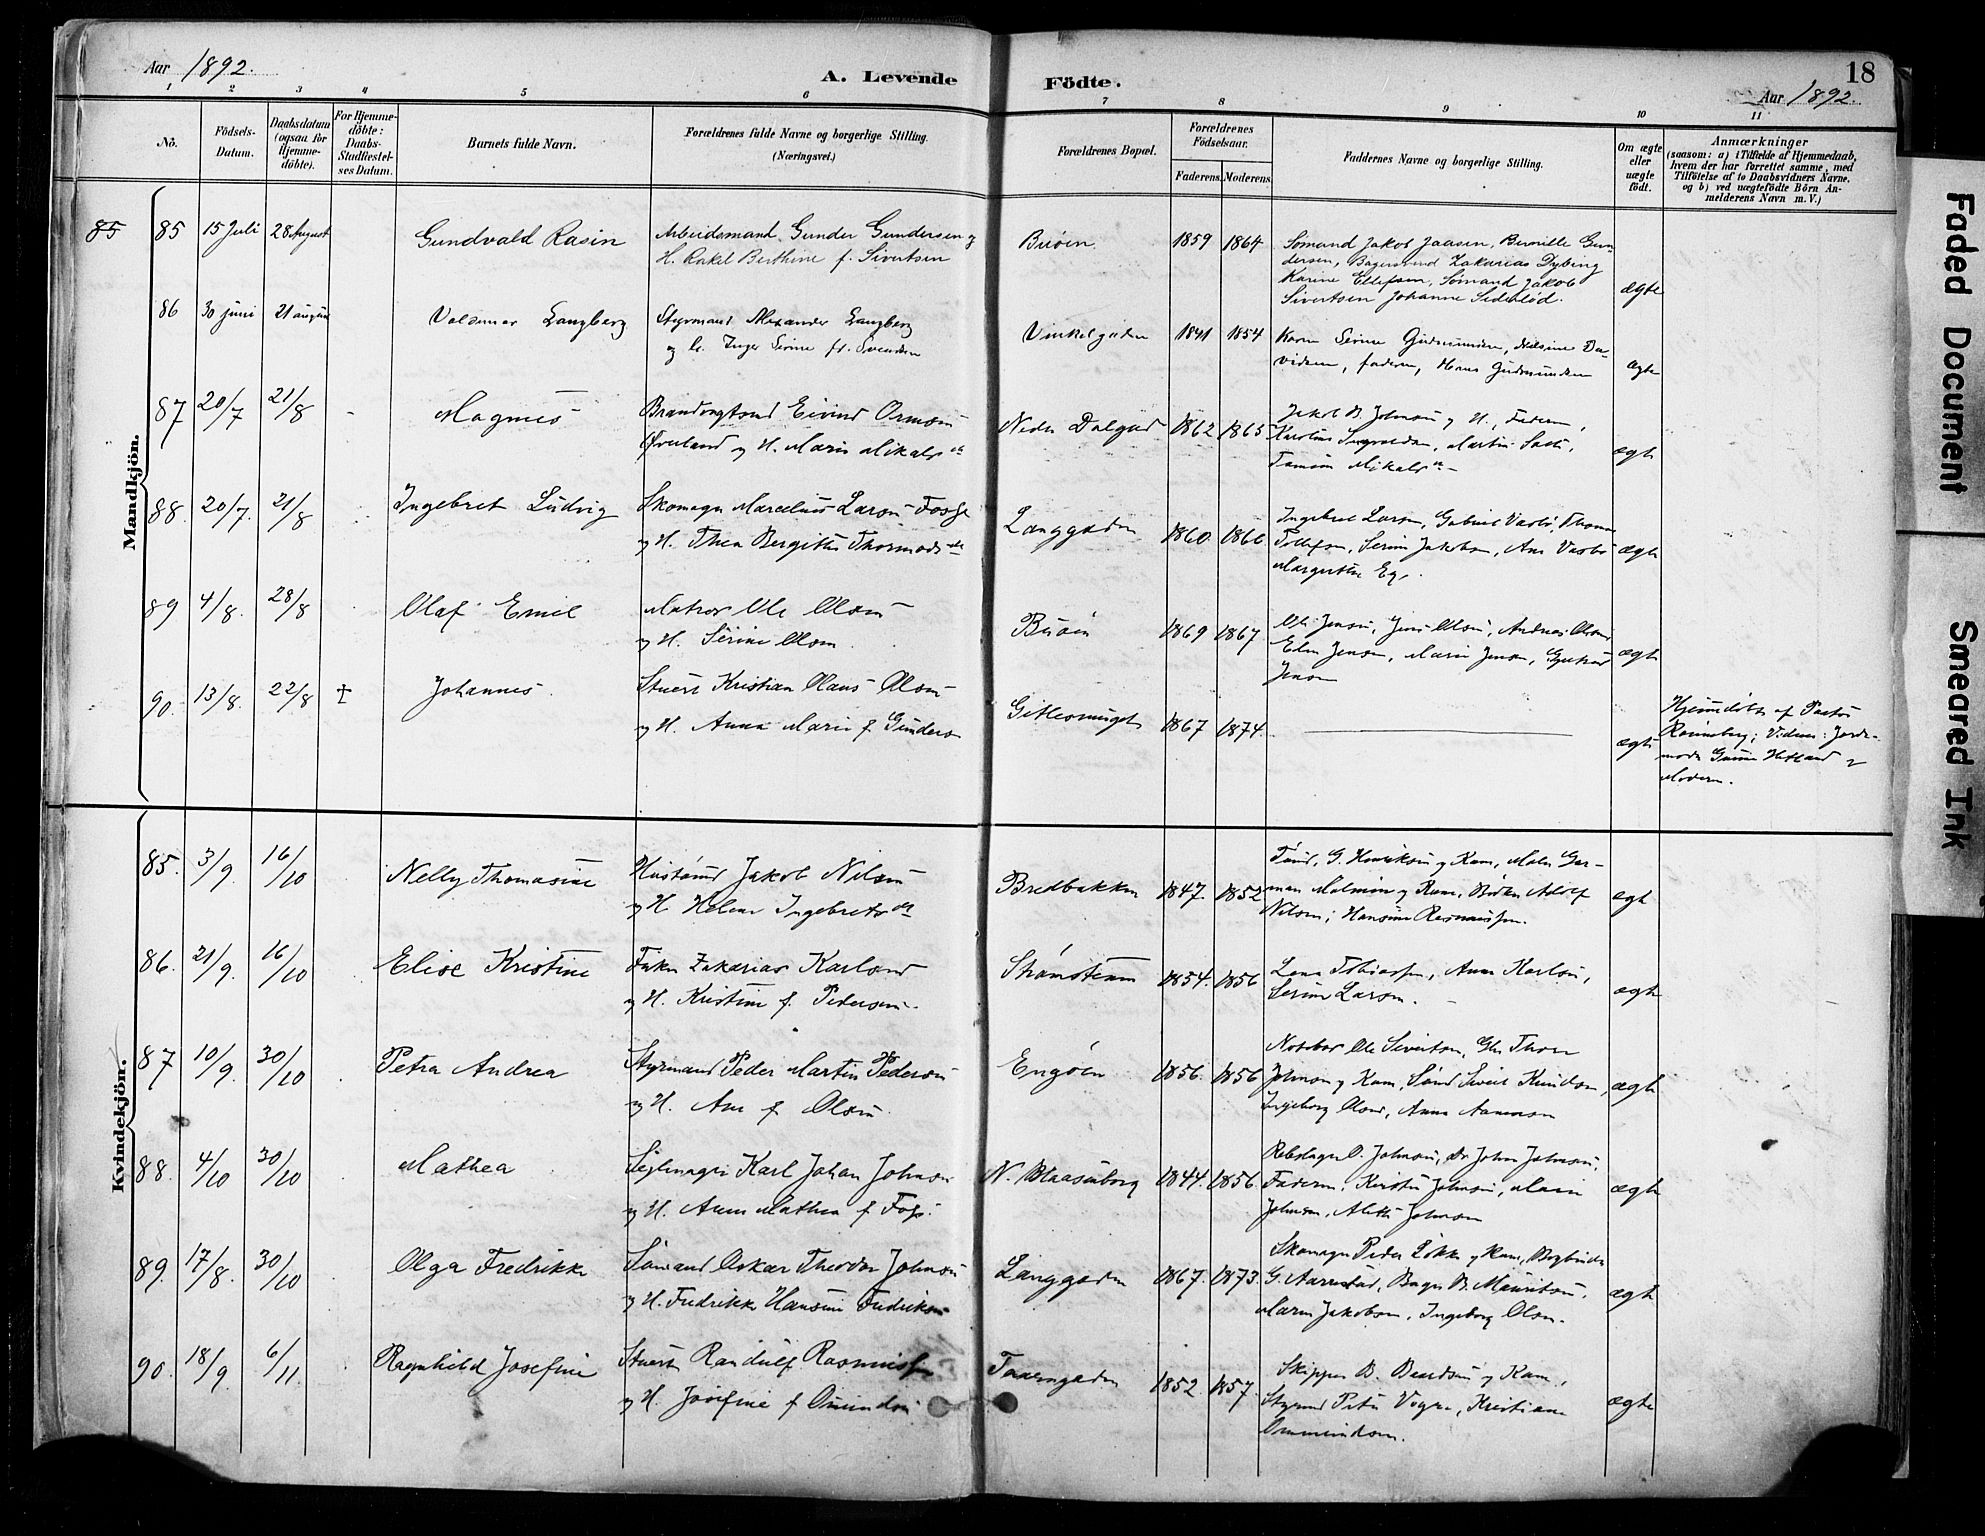 Aar 1892.
A. Levende
Födte.
18
Aar 1892.
1 2 3 4 5 6 7 8 9 10 11
No.
Födsels-
Datum.
Daabsdatum
(ogsaa for
Hjemme-
döbte).
For Hjemme-
döbte:
Daabs-
Stadfæstel-
ses Datum.
Barnets fulde Navn.
Forældrenes fulde Navne og borgerlige Stilling.
(Næringsvei.)
Forældrenes Bopæl.
Forældrenes
Födselsaar.
Faderens. Moderens.
Faddernes Navne og borgerlige Stilling.
Om ægte
eller
uægte
födt.
Anmærkninger
(saasom: a) i Tilfælde af Hjemmedaab,
hvem der har forrettet samme, med
Tilföielse af to Daabsvidners Navne.
og b) ved uægtefödte Börn An-
melderens Navn m. V.)
Mandkjön.
85 85 15 Juli 28 August Gundvald Rasin Arbeidsmand Gunder Gundersen og
H. Rakel Berthine f. Sivertsen
Buöen 1859 1864 Sømand Jakob Jaasen,
dersen, Zakarias Dybing
Karine Ellefsen, Sømand Jakob
Sivertsen Johanne
ægte
86 30 juni 21 august Valdemar Langberg Styrmand Alexander Langberg
og h. Inger Serine f. Svendsen
Vinkelgaden 1841 1854 Karen Serine Gudmundsen, Da-
vidsen, faderen, Hans Gudmundsen
ægte
87 20/7 21/8 - Magnus Eivind Ormsen
Øverland og H. Marie Mikals
Nedre Dalgad 1862 1865 Jakob B. Johnsen og H., Faderen,
Martin
Mikals
ægte
88. 20/7. 21/8 Ingebret Ludvig Skomager Marcelius Larsen Fosse
og H. Thea Bergitte Thormods
Langgaden 1860 Ingebret Larsen, Gabriel Vasbø,
Tollefsen, Serine Jakobsen, Ane Vasbø
Margrethe
ægte
89 4/8. 28/8 Olaf Emil Matros Ole Olsen
og H. Serine Olsen
Buöen 1869 1867. Ole Jensen, Jens Olsen, Andreas Olsen,
Jensen, Marie Jensen,
Jensen
ægte
90. 13/8. 22/8 + Johannes. Stuert Kristian Olaus Olsen
og H. Anna Marie f. Gunders
1867 1874.
ægte
Hjemmedöbt af Pastor
Rønneberg; Vidner: Jorde-
moder Hetland og
Moderen.
Kvindekjön.
85. 3/9. 16/10 Nelly Thomasine Jakob Nilsen
og H. Helene Ingebrets
Bredbakken 1847. 1852 G. Henriksen og Kone, Maler Ger-
man Malmin og Kone, Adolf
Nilsen; Hansine Rasmussen.
ægte
86. 21/9. 16/10 Elise Kristine Fisker Zakarias Karlsen
og H. Kristine f. Pedersen.
Strömstenen 1854. 1856 Lena Tobiassen, Anne Karlsen,
Serine Larsen.
ægte
87 10/9. 30/10 Petra Andrea Styrmand Peder Martin Pedersen
og H. Ane f. Olsen.
Engöen 1856. 1856 Ole Sivertsen, Thore
Johnsen og Kone, Sivert Knudsen,
Ingeborg Olsen, Anna Aanensen
ægte
88. 4/10 30/10 Mathea Seglmager Karl Johan Johnsen
og H. Anne Mathea f. Foss.
N. Blaasenborg 1844. 1856. Rebslager O. Johnsen, John Johnsen,
Faderen, Johnsen, Marie
Johnsen, Alette Johnsen
ægte
89. 17/8. 30/10 Olga Fredrikke Sömand Oskar Theodor Johnsen
og H. Fredrikke Hansine Fredriksen
Langgaden 1867. 1873. Skomager Peder Løkke og Kone, Bogbinder
G. Aarrestad, Bager B. Mauritsen,
Maren Jakobsen, Ingeborg Olsen.
ægte
90. 18/9. 6/11. Ragnhild Josefine Stuert Randulf Rasmussen
og H. Josefine f. Omundsen
1852. 1857. Skipper B. og Kone,
Styrmd Peter Kristiane
Ommundsen.
ægte
Faded Document
Smeared Ink